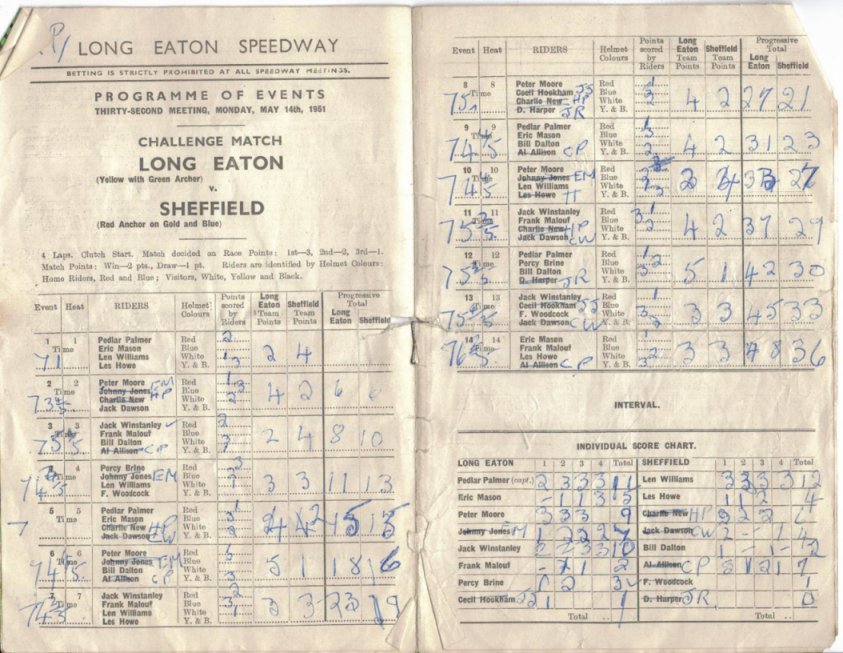 LONG EATON SPEEDWAY
BETTING IS STRICTLY PROHIBITED AT ALL SPEEDWAY MEETINGS.
PROGRAMME OF EVENTS
THIRTY-SECOND MEETING, MONDAY, MAY 14th, 1951
CHALLENGE MATCH
LONG EATON
(Yellow with Green Archer)
v.
SHEFFIELD
(Red Anchor on Gold and Blue)
4 Laps. Clutch Start. Match decided on Race Points: 1st—3, 2nd—2, 3rd—1.
Match Points: Win—2 pts., Draw—1 pt. Riders are identified by Helmet Colours:
Home Riders, Red and Blue; Visitors, White, Yellow and Black.
Event Heat RIDERS Helmet Colours Points scored by Riders Long Eaton Team Points Sheffield Team Points Progressive Total Long Eaton Sheffield
1 1 Pedlar Palmer Red 2
Time Eric Mason Blue
71 Len Williams White 2 4
Les Howe Y. & B.
2 2 Peter Moore Red
Time Johnny Jones Blue
Charlie New HP White 4 2 6 6
Jack Dawson Y. & B.
3 3 Jack Winstanley Red 2
Time Frank Malouf Blue
Bill Dalton White 2 4 8 10
Al Allison CP Y. & B.
4 4 Percy Brine Red
Time Johnny Jones EM Blue
Len Williams White 3 3 11 13
F. Woodcock Y. & B.
5 5 Pedlar Palmer Red
Time Eric Mason Blue
Charlie New HP White
Jack Dawson CW Y. & B.
6 6 Peter Moore Red
Time Johnny Jones Blue
Bill Dalton White 5 1 18 16
Al Allison CP Y. & B.
7 7 Jack Winstanley Red
Frank Malouf Blue
Len Williams White 3 3 23 19
Les Howe Y. & B.
Event Heat RIDERS Helmet Colours Points scored by Riders Long Eaton Team Points Sheffield Team Points Progressive Total Long Eaton Sheffield
8 8 Peter Moore Red
Time Cecil Hookham JS Blue
Charlie New HP White 4 2 27 21
D. Harper JR Y. & B.
9 9 Pedlar Palmer Red
Time Eric Mason Blue
Bill Dalton White 4 2 31 23
Al Allison CP Y. & B.
10 10 Peter Moore Red
Time Johnny Jones EM Blue
Len Williams White 27
Les Howe Y. & B.
11 11 Jack Winstanley Red
Time Frank Malouf Blue
Charlie New HP White 4 2 37 29
Jack Dawson CW Y. & B.
12 12 Pedlar Palmer Red
Time Percy Brine Blue
Bill Dalton White 5 1 42 30
D. Harper JR Y. & B.
13 13 Jack Winstanley Red
Time Cecil Hookham JS Blue
F. Woodcock White 3 3 45 33
Jack Dawson CW Y. & B.
14 14 Eric Mason Red
Time Frank Malouf Blue
Les Howe White 3 3 48 36
Al Allison CP Y. & B.
INTERVAL.
INDIVIDUAL SCORE CHART.
LONG EATON 1 2 3 4 Total SHEFFIELD 1 2 3 4 Total
Pedlar Palmer (capt.) 2 3 3 3 11 Len Williams 3 3 3 3 12
Eric Mason - 1 1 3 5 Les Howe 1 1 2 4
Peter Moore 3 3 3 9 Charlie New HP
Johnny Jones 1 2 2 2 7 Jack Dawson CW 2 - 1 4
Jack Winstanley 2 2 3 3 10 Bill Dalton 1 - 1 - 2
Frank Malouf - 1 1 2 Al Allison CP 3 1 2 1 7
Percy Brine 1 2 3 F. Woodcock 1
Cecil Hookham 1 1 D. Harper JR 0
Total .. Total ..